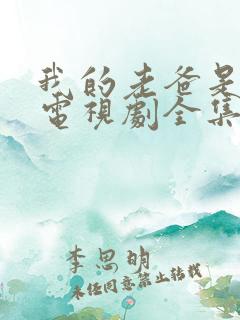 我的老爸是
電視劇全集
李思明
未经同意禁止转载